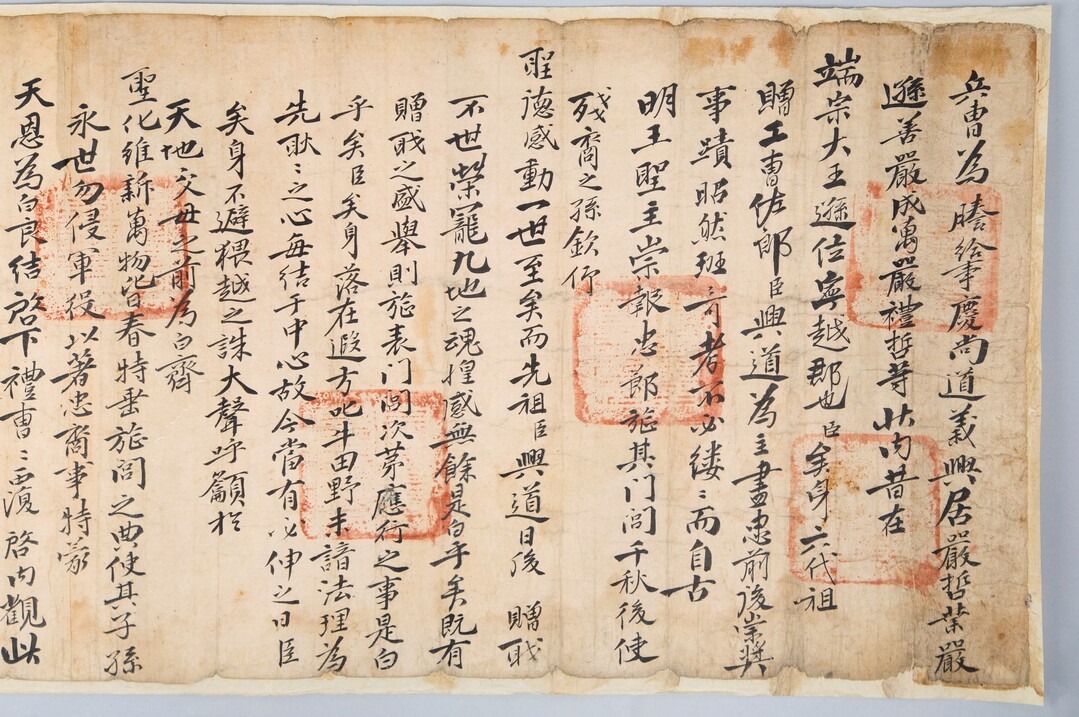 兵曹為謄給事慶尚道義興居嚴哲業嚴
遜善嚴成萬嚴禮哲等狀內昔在
端宗大王遜位寧越郡也臣矣身六代祖
贈工曹佐郎臣興道為主盡忠前後崇獎
事蹟昭然班班可考不必縷〻而自古
明王聖主崇報忠節旌其門閭千秋後使
殘裔之孫欽仰
聖德感動一世至矣而先祖臣興道日後贈職
不世榮寵九地之魂惶感無餘是白乎矣既有
贈職之盛舉則旌表門閭次苐應行之事是白
乎矣臣矣身落在遐方叱牛田野未諳法理為
先耿〻之心每結于中心故今當有必伸之日臣
矣身不避猥越之誅大聲呼籲於
天地父母之前為白齊
聖化維新萬物皆春特垂旌閭之典使其子孫
永世勿侵軍役以著忠裔事特蒙
天恩為白良結啓下禮曹〻覆啓內觀此